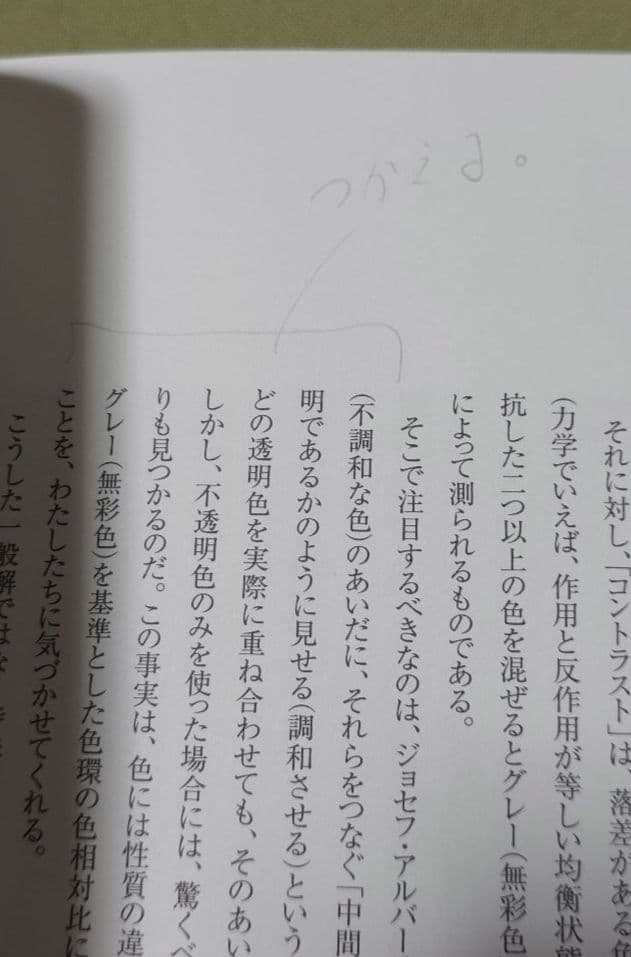 つかえる。
それに対し、「コントラスト」は、落差がある色
(力学でいえば、作用と反作用が等しい均衡状態
抗した二つ以上の色を混ぜるとグレー(無彩色
によって測られるものである。
そこで注目するべきなのは、ジョセフ・アルバー
(不調和な色)のあいだに、それらをつなぐ「中間
明であるかのように見せる(調和させる)という
どの透明色を実際に重ね合わせても、そのあい
しかし、不透明色のみを使った場合には、驚くべ
りも見つかるのだ。この事実は、色には性質の違
グレー(無彩色)を基準とした色環の色相対比に
ことを、わたしたちに気づかせてくれる。
こうした一般解ではな